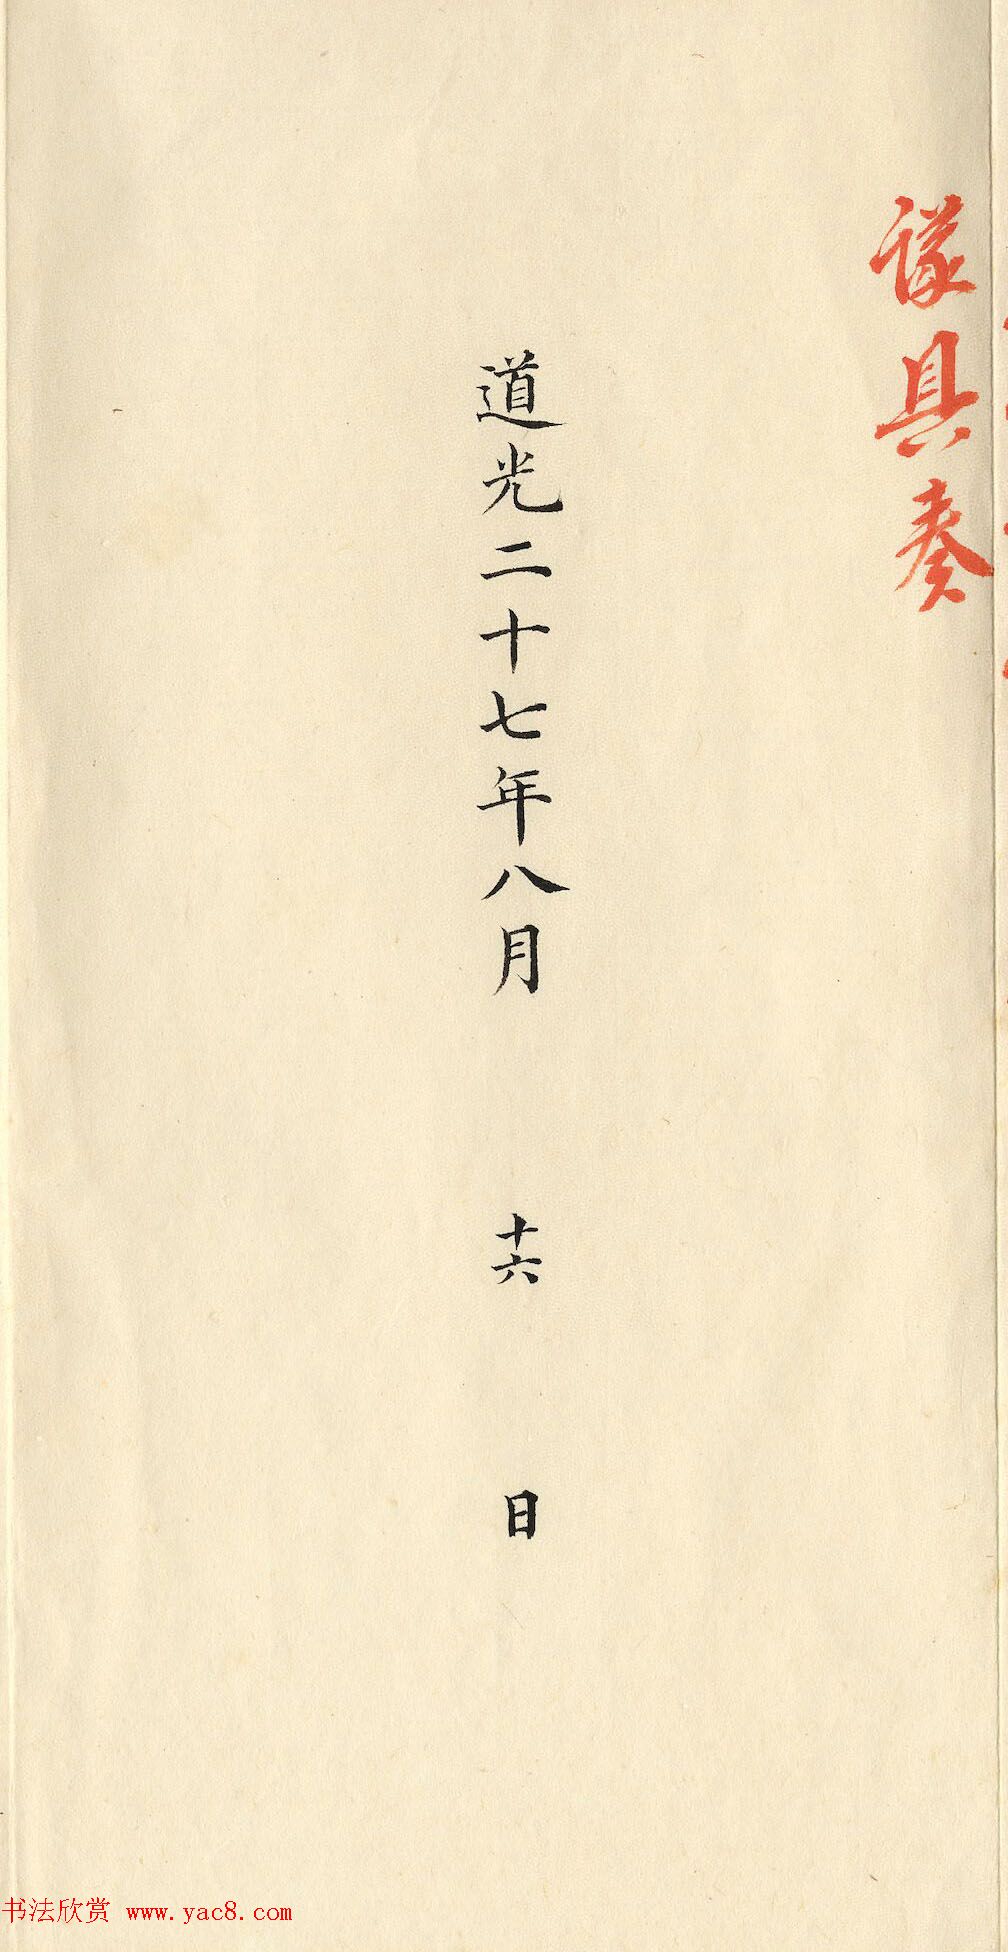 議具奏
道光二十七年八月 十六 日
书法欣赏 www.yac8.com